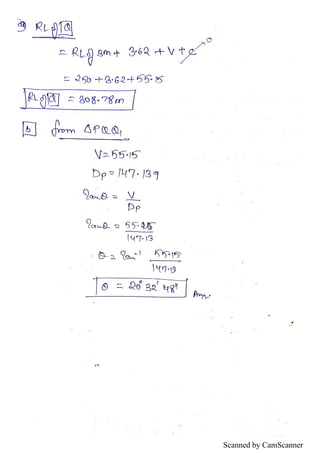 a) RL of Q
= RL of BM + 3.62 + V + C 0
= 250 + 3.62 + 55.15
RL of Q = 308.78m
b from ΔPQQ₁
V = 55.15
Dp = 147.139
tanθ = V / Dp
tanθ = 55.15 / 147.13
θ = tan⁻¹ 55.15 / 147.13
θ = 20° 32' 48" Ans.
Scanned by CamScanner